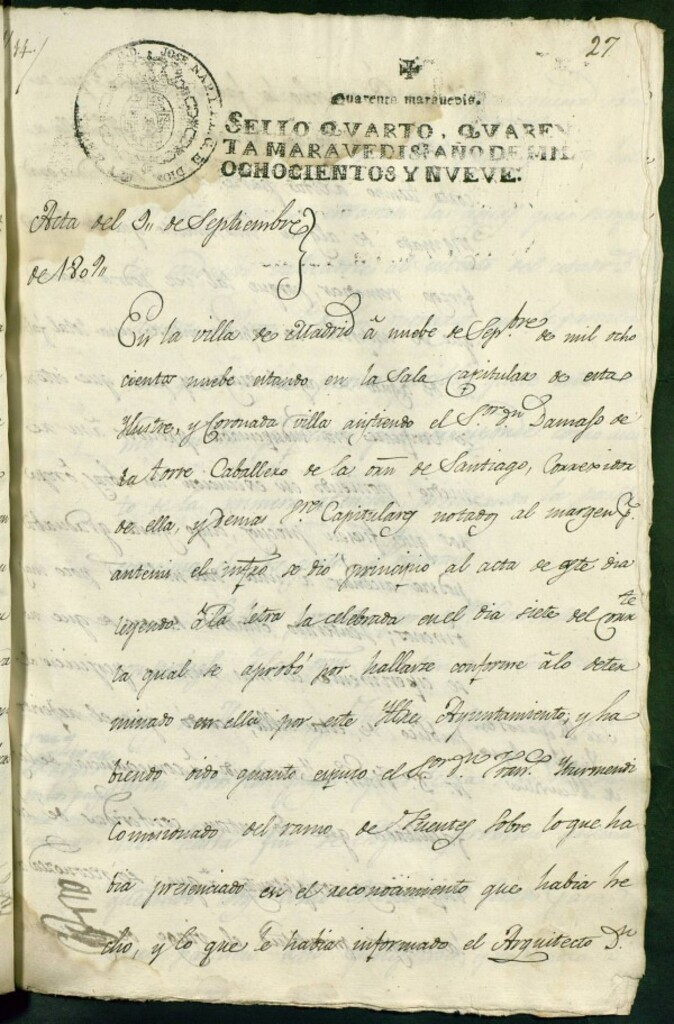 27
Quarenta maravedis.
SELLO QVARTO, QVAREN
TA MARAVEDIS, AÑO DE MIL
OCHOCIENTOS Y NVEVE.
Acta del 9,, de Septiembre
de 1809,,
En la villa de Madrid â nuebe de Sep.bre de mil ocho
cientos nuebe estando en la Sala Capitular de esta
Ilustre, y Coronada villa asistiendo el S.or D.n Damaso de
la torre Caballero de la orn de Santiago, Correxidor
de ella, y demas Capitulares notados al margen
antemi el se dió principio al acta de este dia
leyendo â la letra la celebrada en el dia siete del Corr.te
la qual se aprobó por hallarse conforme âlo deter
minado en ella por este Ayuntamiento, y ha
biendo oido quanto expuso el S.or D.n Fran.co Iturmendi
Comisionado del ramo de Fuentes sobre lo que ha
bia presenciado en el reconocimiento que habia he
cho, y lo que le habia informado el Arquitecto D.n